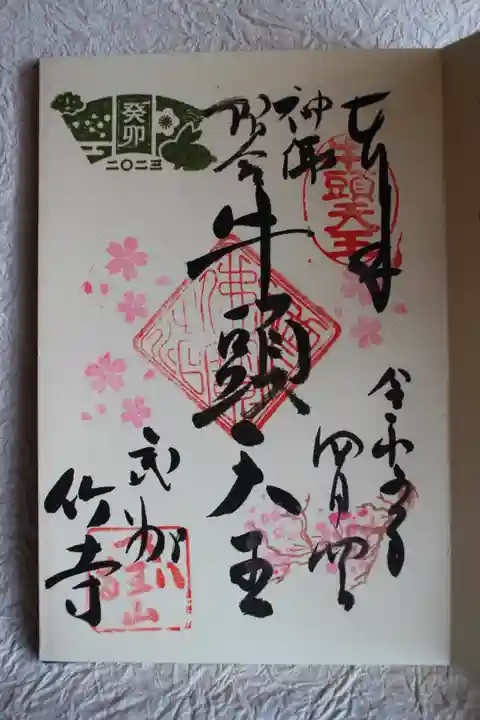 奉拝
牛頭天王
令和五年
四月四日
神仏
習合
牛頭天王
武州
竹寺
癸卯
二〇二三